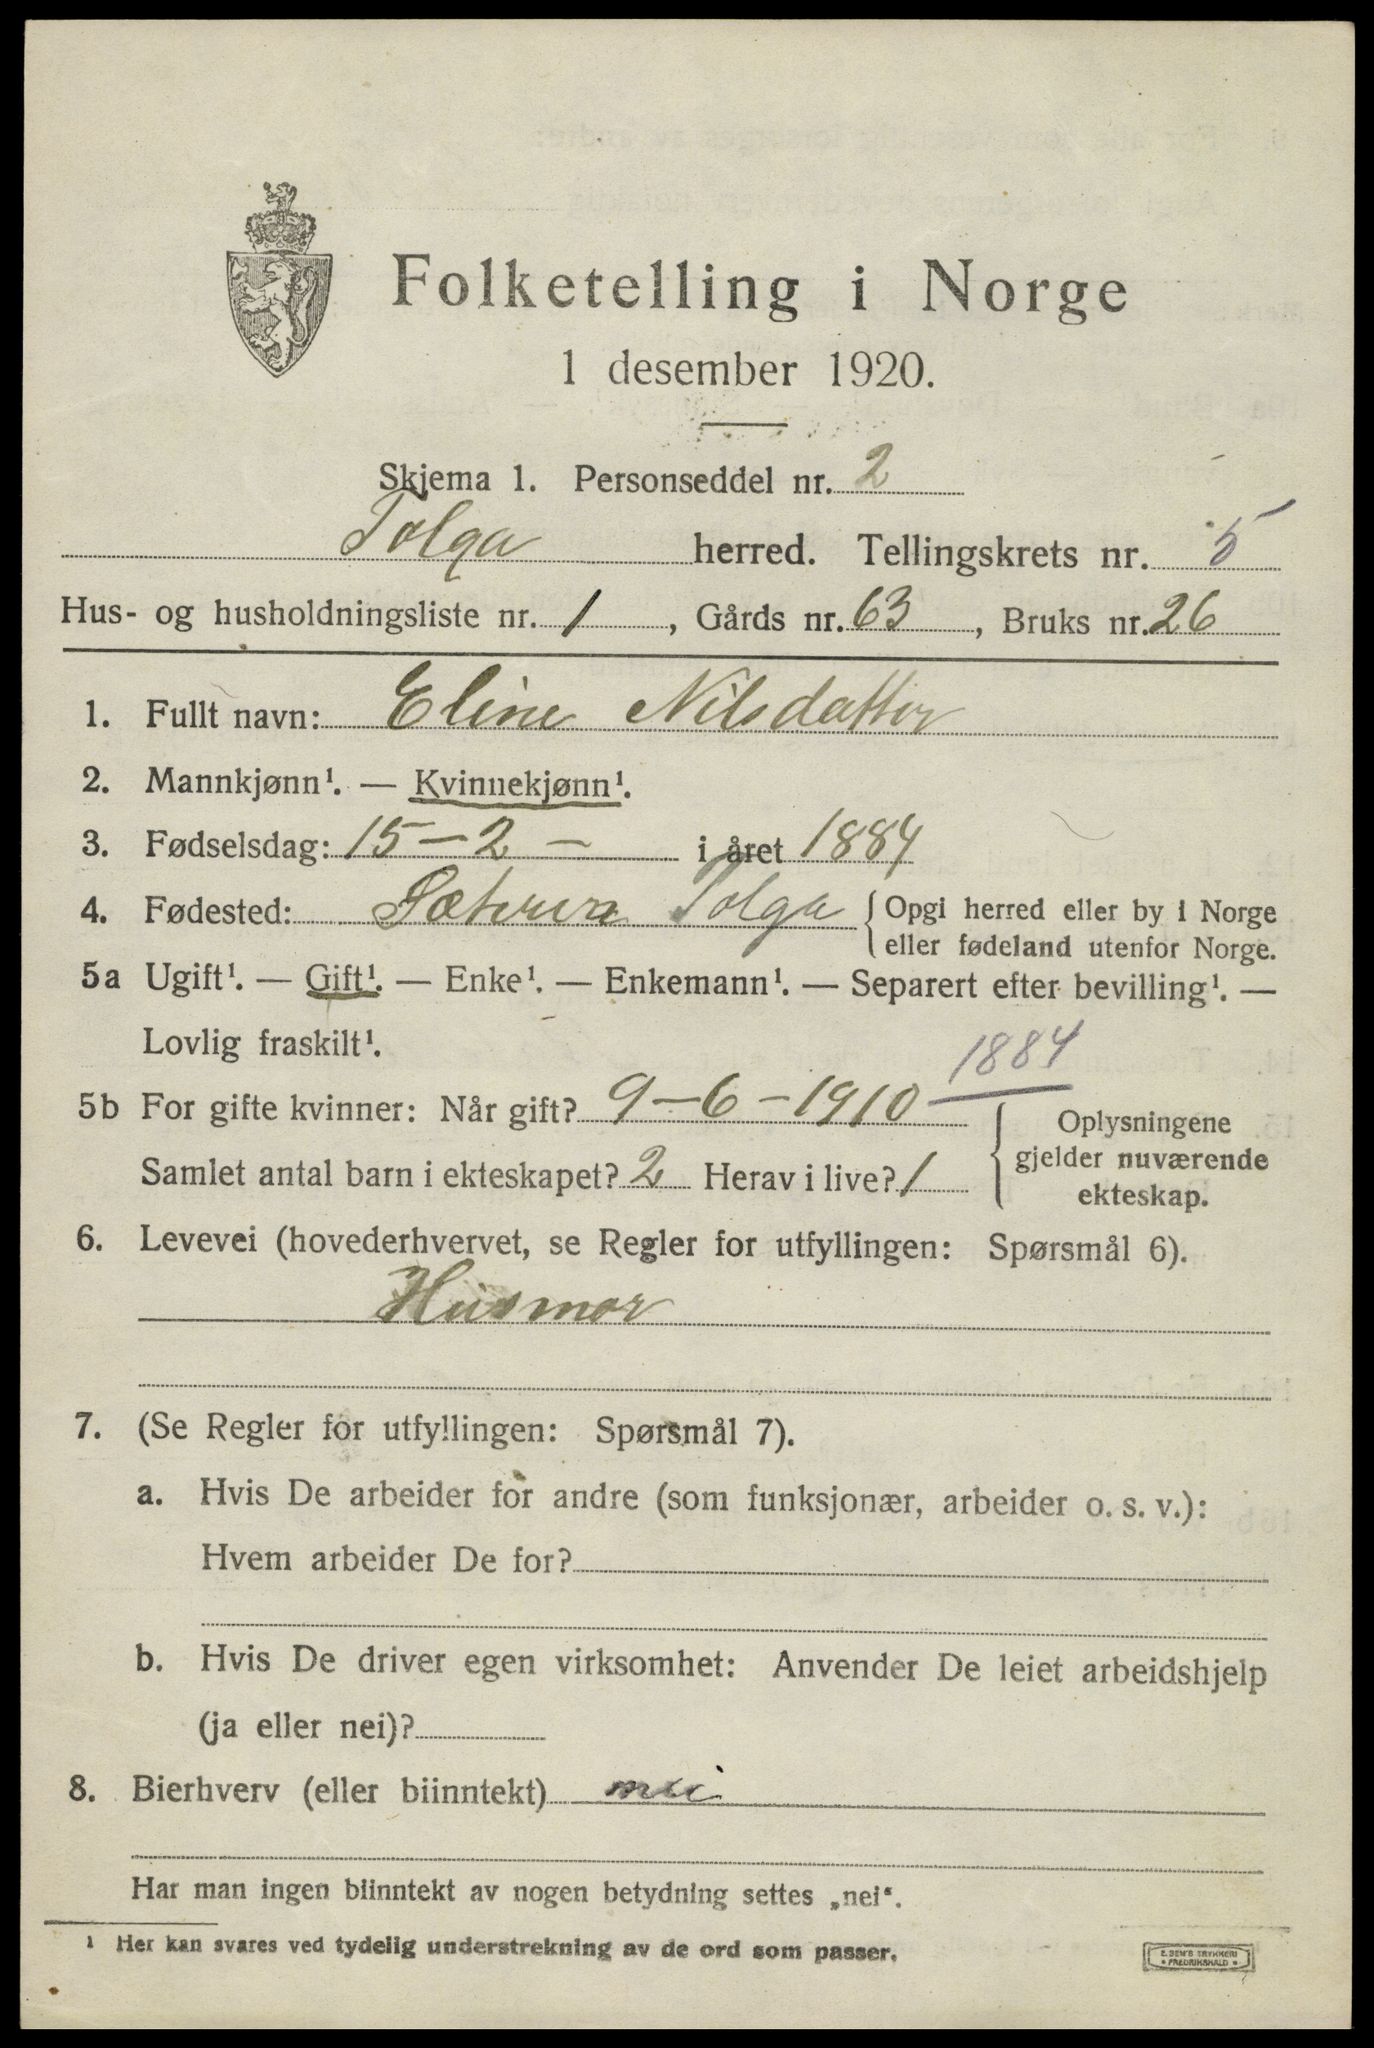 Folketelling i Norge
1 desember 1920.
Skjema 1. Personseddel nr. 2
Tolga herred. Tellingskrets nr. 5
Hus- og husholdningsliste nr. 1, Gårds nr. 63, Bruks nr. 26
1. Fullt navn: Eline Nilsdatter
2. Mannkjønn¹. — Kvinnekjønn¹.
3. Fødselsdag: 15 – 2 – i året 1884
4. Fødested: Tolga { Opgi herred eller by i Norge
eller fødeland utenfor Norge.
5a Ugift¹. — Gift¹. — Enke¹. — Enkemann¹. — Separert efter bevilling¹. —
Lovlig fraskilt¹.
1884
5b For gifte kvinner: Når gift? 9 – 6 – 1910
Samlet antal barn i ekteskapet? 2 Herav i live? 1
Oplysningene
gjelder nuværende
ekteskap.
6. Levevei (hovederhvervet, se Regler for utfyllingen: Spørsmål 6).
Husmor
7. (Se Regler for utfyllingen: Spørsmål 7).
a. Hvis De arbeider for andre (som funksjonær, arbeider o. s. v.):
Hvem arbeider De for?
b. Hvis De driver egen virksomhet: Anvender De leiet arbeidshjelp
(ja eller nei)?
8. Bierhverv (eller biinntekt) nei
Har man ingen biinntekt av nogen betydning settes „nei“.
¹ Her kan svares ved tydelig understrekning av de ord som passer.
E. SEM'S TRYKKERI
• FREDRIKSHALD •